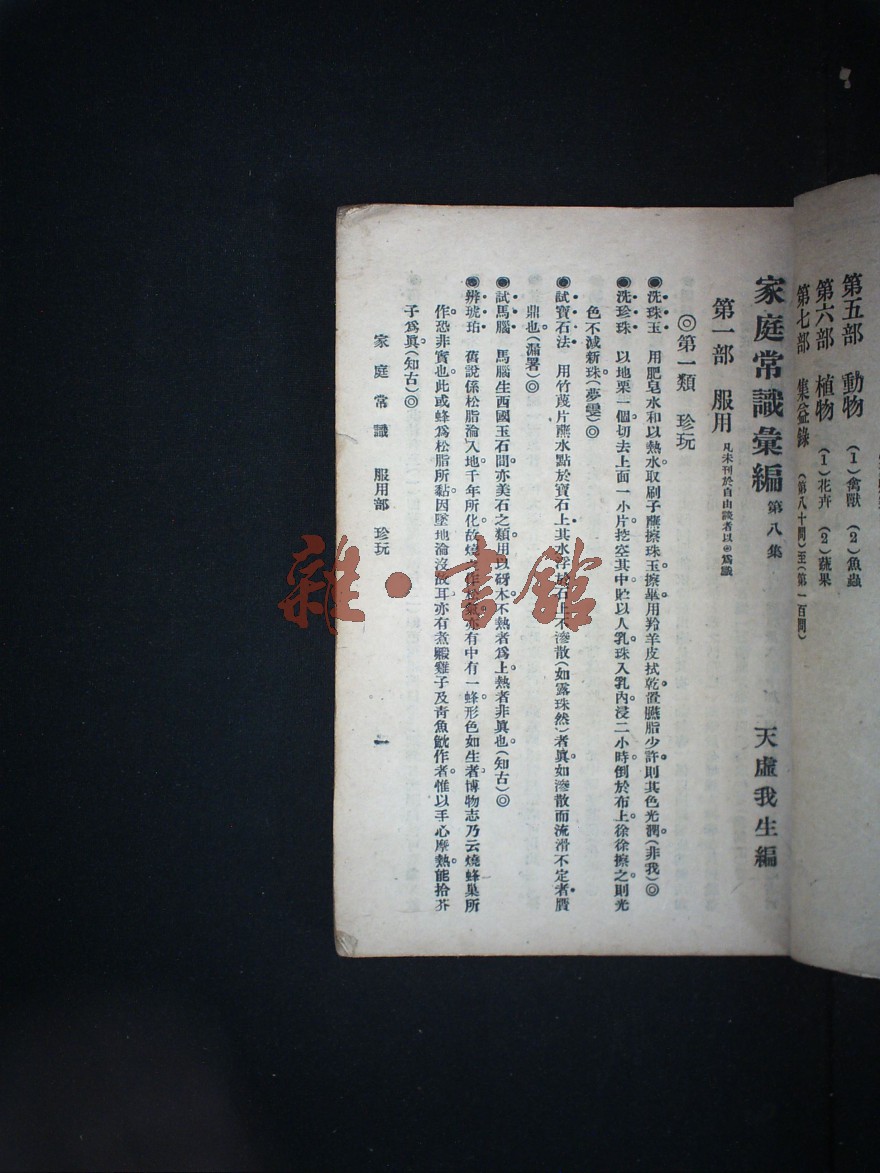 第五部　動物　（1）禽獸　（2）魚蟲
第六部　植物　（1）花卉　（2）蔬果
第七部　集益錄　（第八十問）至（第一百問）
家庭常識彙編　第八集　天虛我生編
第一部　服用　凡未刊於自由談者以⊕爲識
◎第一類　珍玩
◉洗珠玉　用肥皂水和以熱水取刷子蘸擦珠玉擦畢用羚羊皮拭乾置臙脂少許則其色光潤。（非我）◎
◉洗珍珠　以地栗一個。切去上面一小片。挖空其中。貯以人乳。珠入乳內。浸二小時。倒於布上。徐徐擦之。則光
色不減新珠（夢蠻）◎
◉試寶石法　用竹蔑片蘸水點於寶石上。其水浮於石上不滲散（如露珠然）者眞如滲散而流滑不定者贋
鼎也。（漏署）◎
◉試馬腦　馬腦生西國玉石間亦美石之類。用以砑木。不熱者爲上。熱者非眞也。（知古）◎
◉辨琥珀　舊說係松脂淪入地千年所化。故燒之作松氣。亦有中有一蜂形色如生者。博物志乃云燒蜂巢所
作。恐非實也。此或蜂爲松脂所黏。因墜地淪沒故耳。亦有煮毈雞子及青魚魫作者。惟以手心摩熱。能拾芥
子爲眞。（知古）◎
家庭常識　服用部　珍玩　一
雜・書館